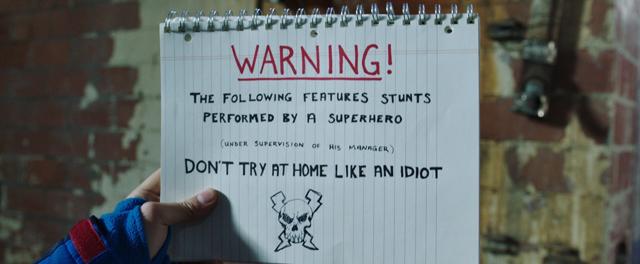 WARNING!
THE FOLLOWING FEATURES STUNTS
PERFORMED BY A SUPERHERO
(UNDER SUPERVISION OF HIS MANAGER)
DON'T TRY AT HOME LIKE AN IDIOT